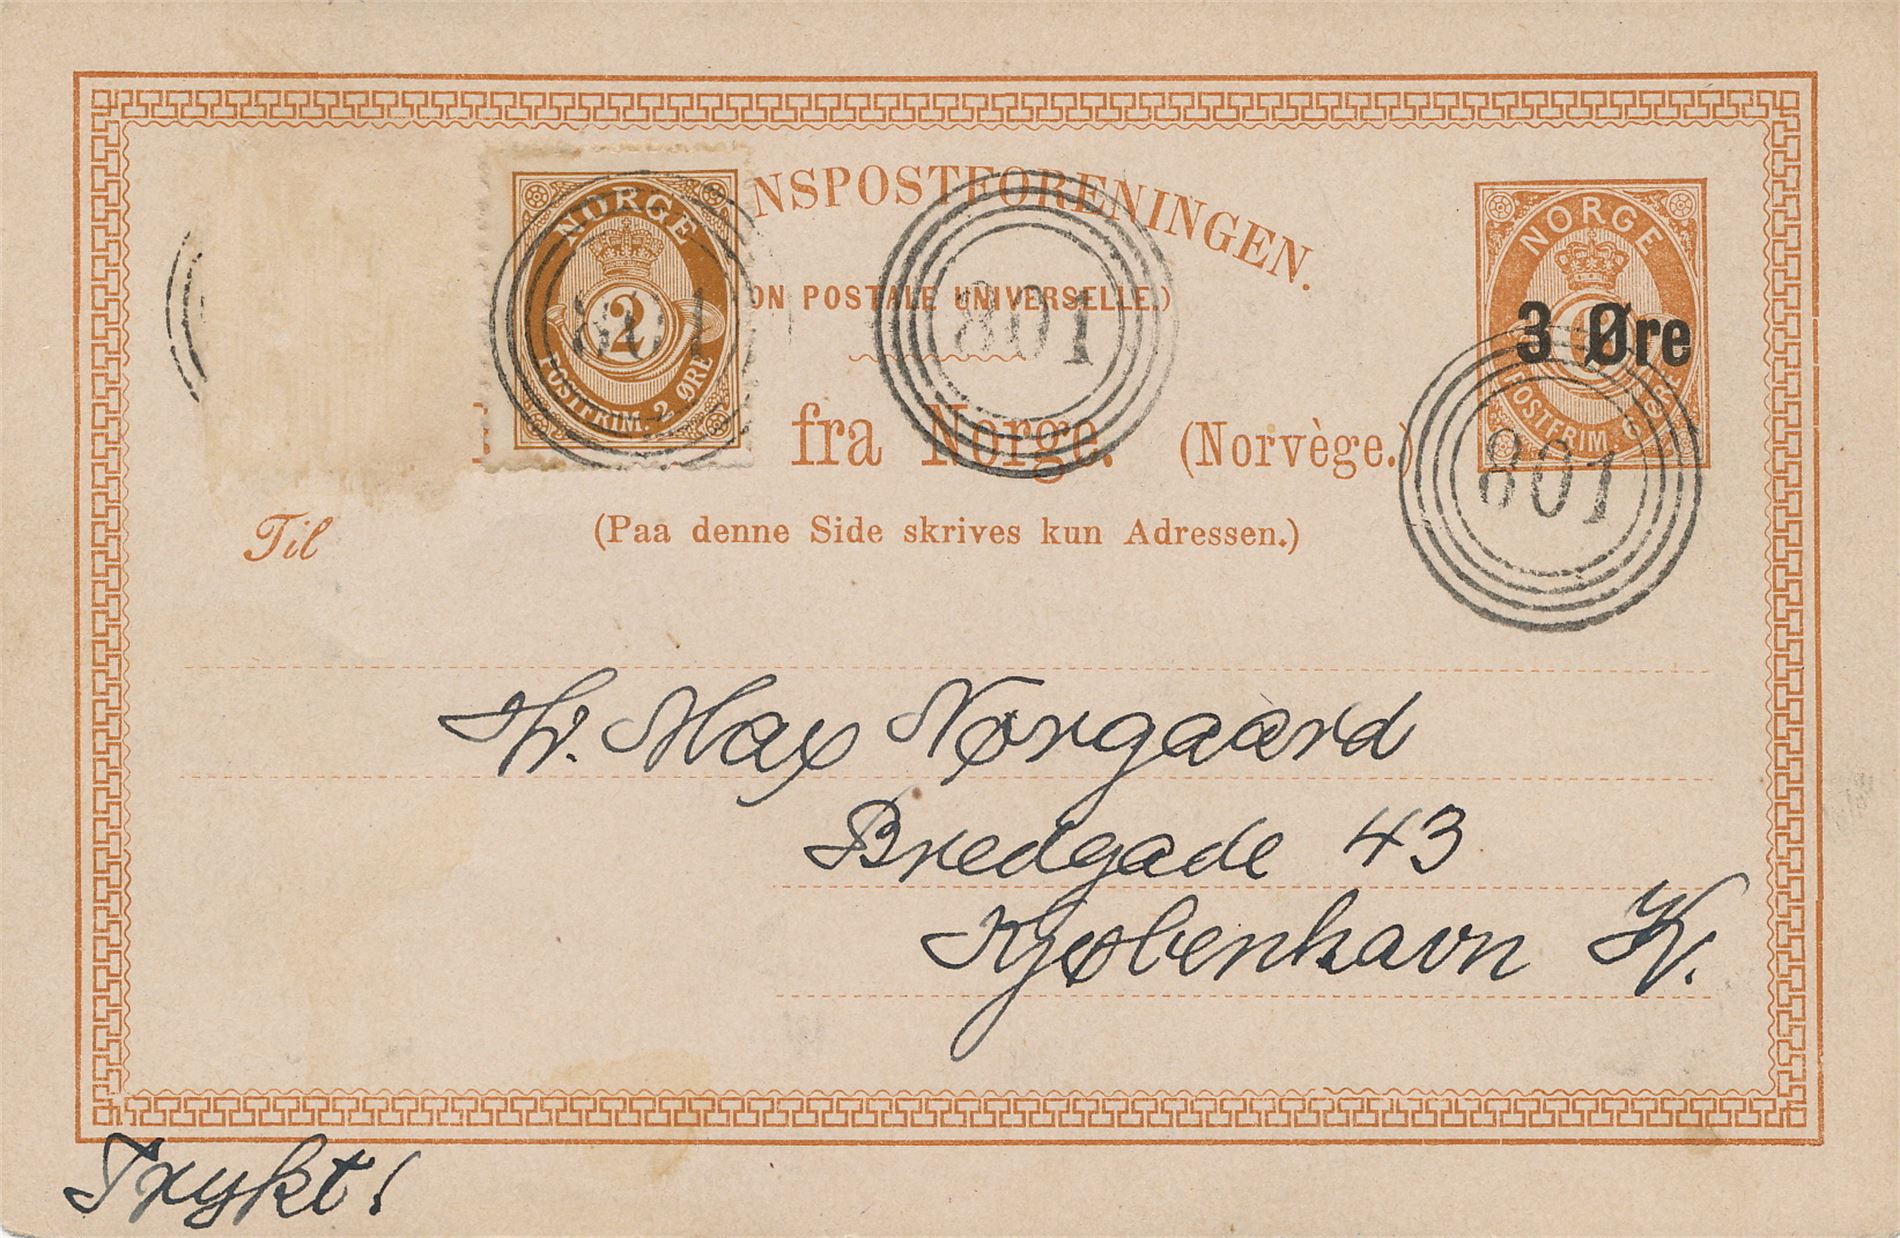 NSPOSTFORENINGEN.
ON POSTALE UNIVERSELLE.)
fra Norge. (Norvège.)
(Paa denne Side skrives kun Adressen.)
Til
NORGE
2
POSTFRIM. 2 ØRE
801
801
NORGE
3 Øre
POSTFRIM. 6
801
Hr. Max Nørgaard
Bredgade 43
Kjøbenhavn K.
Trykt!